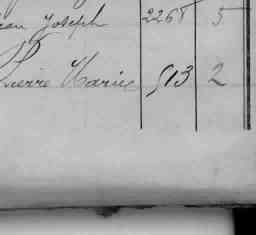 Jean Joseph 2268 5
Pierre Marie 513 2